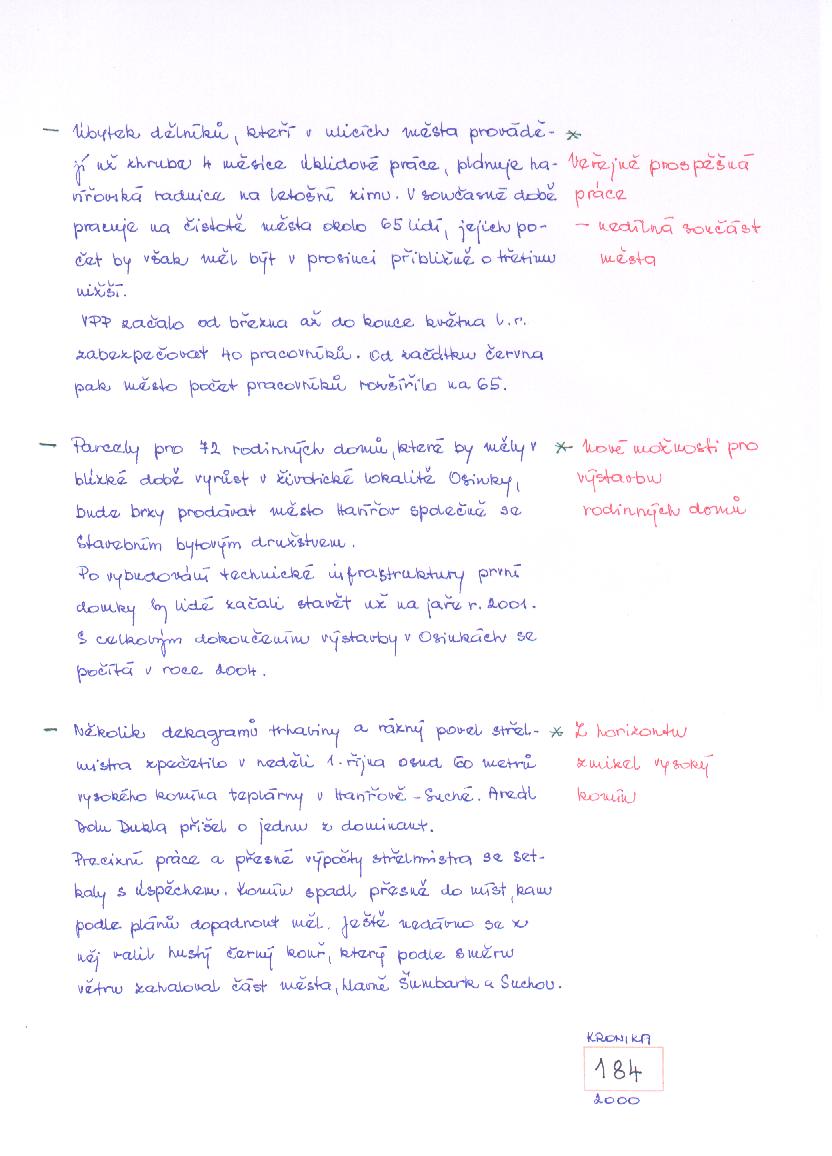 – Úbytek dělníků, kteří v ulicích města provádě- *
jí už zhruba 4 měsíce úklidové práce, plánuje ha- Veřejně prospěšná
vířovská radnice na letošní zimu. V současné době práce
pracuje na čistotě města okolo 65 lidí, jejich po- – nedílná součást
čet by však měl být v prosinci přibližně o třetinu města
nižší.
VPP začalo od března až do konce května t.r.
zabezpečovat 40 pracovníků. Od začátku června
pak město počet pracovníků rozšířilo na 65.
– Parcely pro 72 rodinných domů, které by měly v * Nové možnosti pro
blízké době vyrůst v životické lokalitě Osinky, výstavbu
bude brzy prodávat město Havířov společně se rodinných domů
Stavebním bytovým družstvem.
Po vybudování technické infrastruktury první
domky by lidé začali stavět už na jaře r. 2001.
S celkovým dokončením výstavby v Osinkách se
počítá v roce 2004.
– Několik dekagramů trhaviny a rázný povel střel- * Z horizontu
mistra zpečetilo v neděli 1. října osud 60 metrů zmizel vysoký
vysokého komína teplárny v Havířově – Suché. Areál komín
Dolu Dukla přišel o jednu z dominant.
Precizní práce a přesné výpočty střelmistra se set-
kaly s úspěchem. Komín spadl přesně do míst, kam
podle plánů dopadnout měl. Ještě nedávno se z
něj valil hustý černý kouř, který podle směru
větru zahaloval část města, hlavně Šumbark a Suchou.
KRONIKA
184
2000